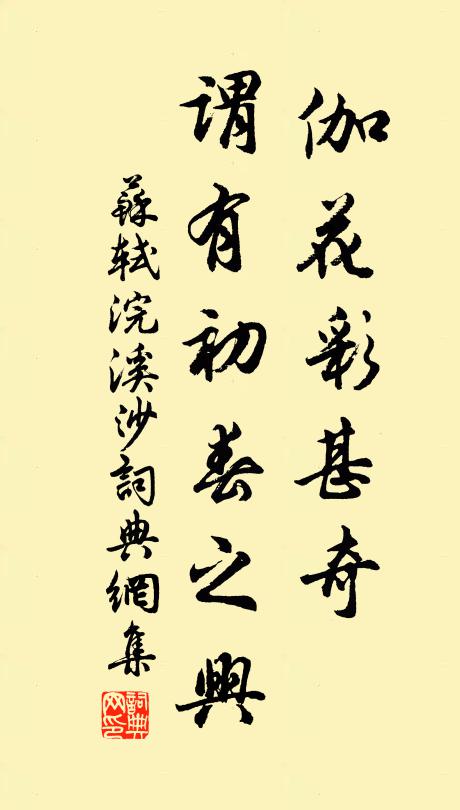 伽花彩甚奇
謂有初春之興
蘇軾浣溪沙詞典網集
詞典網印